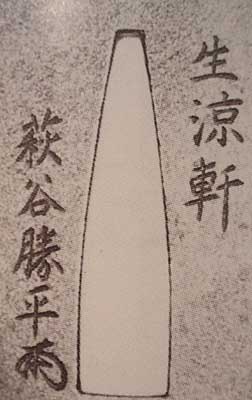 生涼軒
萩谷勝平